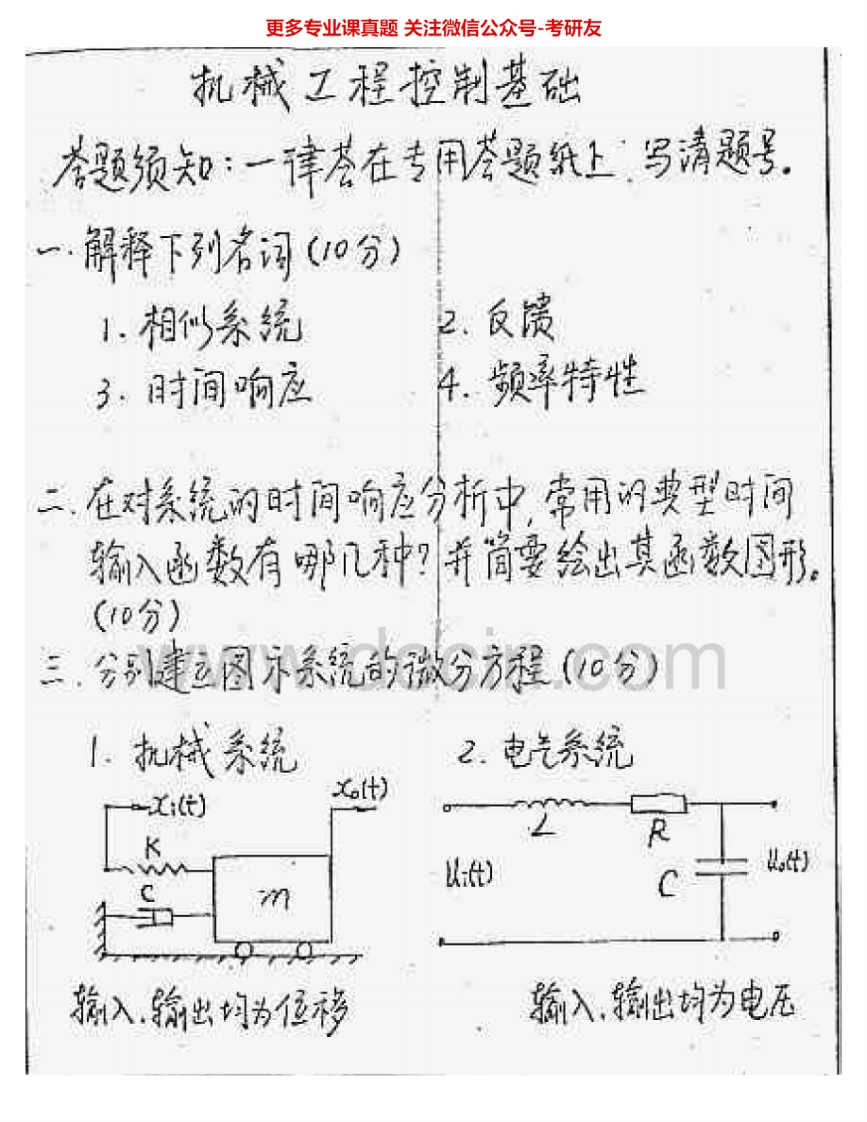 更多专业课真题 关注微信公众号-考研友
机械工程控制基础
答题须知:一律答在专用答题纸上,写清题号。
一.解释下列名词(10分)
1.相似系统 2.反馈
3.时间响应 4.频率特性
二.在对系统的时间响应分析中,常用的典型时间
输入函数有哪几种?并简要绘出其函数图形。
(10分)
三.分别建立图示系统的微分方程(10分)
1.机械系统 2.电气系统
xi(t) xo(t)
K
C m
L R
Ui(t) C Uo(t)
输入.输出均为位移 输入.输出均为电压